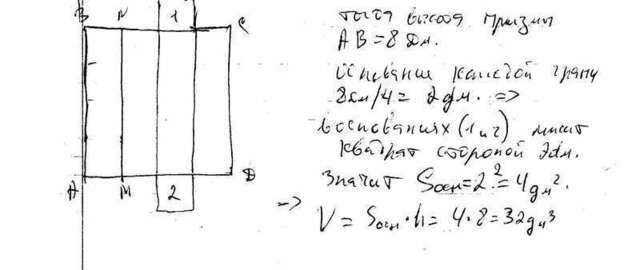 B N 1 C
A M 2 D
тогда высота призмы
AB = 8 дм.
Основание каждой грани
8дм/4 = 2дм. =>
в основаниях (1 и 2) лежит
квадрат стороной 2дм.
Значит Sосн = 2² = 4дм².
=> V = Sосн · h = 4 · 8 = 32дм³